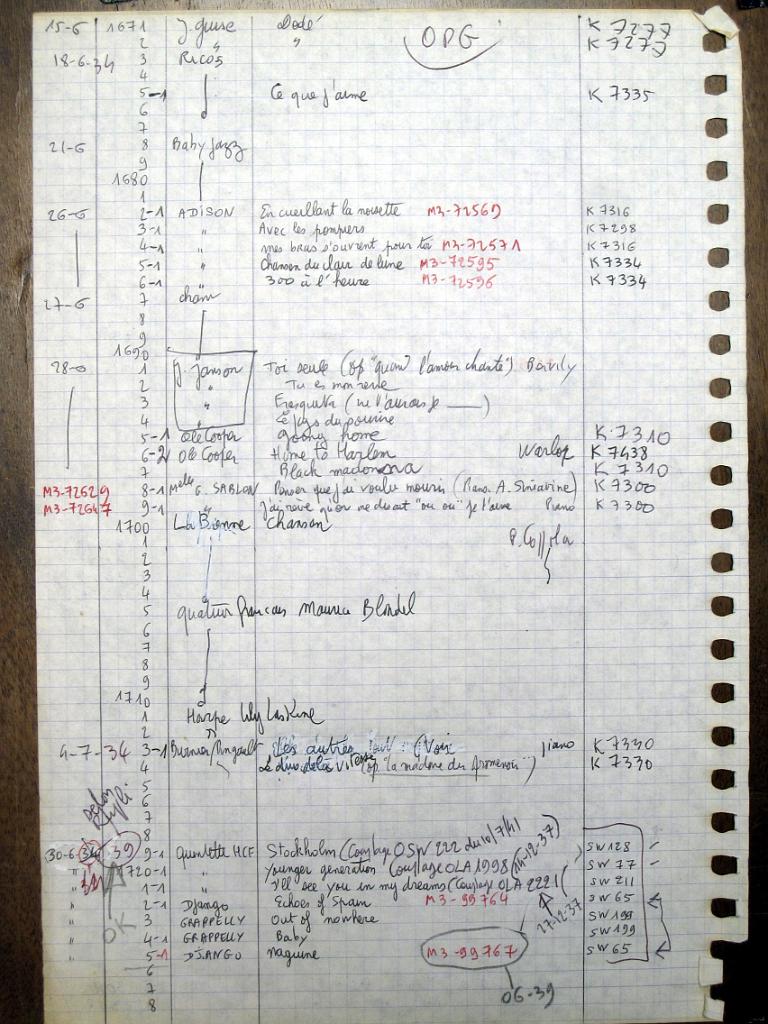 15-6 1671 J. Guise Dodé OPG K 7277
2 " " K 7277
18-6-34 3 Ricos
4
5-1 Ce que j'aime K 7335
6
7
21-6 8 Baby Jazz
9
1680
1
26-6 2-1 ADISON En cueillant la noisette M3-72569 K 7316
3-1 " Avec les pompiers K 7298
4-1 " mes bras s'ouvrent pour toi M3-72571 K 7316
5-1 " Chanson du clair de lune M3-72595 K 7334
6-1 " 300 à l'heure M3-72596 K 7334
27-6 7 cham
8
9
1690
28-6 1 J. Janson Toi seule (op "quand l'amour chante")
2 " Tu es mon reve
3 "
4
5-1 Ole Cooper going home K-7310
6-2 Ole Cooper Home to Harlem Warlop K 7438
7 Black madonna K 7310
M3-72629 8-1 Melle G. SABLON Penser que j'ai voulu mourir (Piano A. Siniavine) K 7300
M3-72647 9-1 " j'ai revé qu'on me disait "ou ou" je t'aime Piano K 7300
1700 La Bienne Chanson
1 P. Coppola
2
3
4
5 quatuor francais Maurice Blondel
6
7
8
9
1710
1 Harpe Lily Laskine
4-7-34 3-1 Les autres (Voix piano K 7330
4 Le dieu de la vitesse (op "la madone du Promenoir") K 7330
5
6
7
8
30-6 34 39 9-1 Quintette HCF Stockholm (Couplage OSW 222 du 10/7/41) SW 128
" 34 1720-1 " Younger generation (Couplage OLA 1998 (14-12-37) SW 77
" 1-1 " I'll see you in my dreams (Couplage OLA 2221 ( SW 211
" 2-1 Django Echoes of Spain M3-99764 27-12-37 SW 65
" 3 GRAPPELLY Out of nowhere SW 199
" OK 4-1 GRAPPELLY Baby SW 199
" 5-1 DJANGO Naguine M3-99767 SW 65
6
7 06-39
8